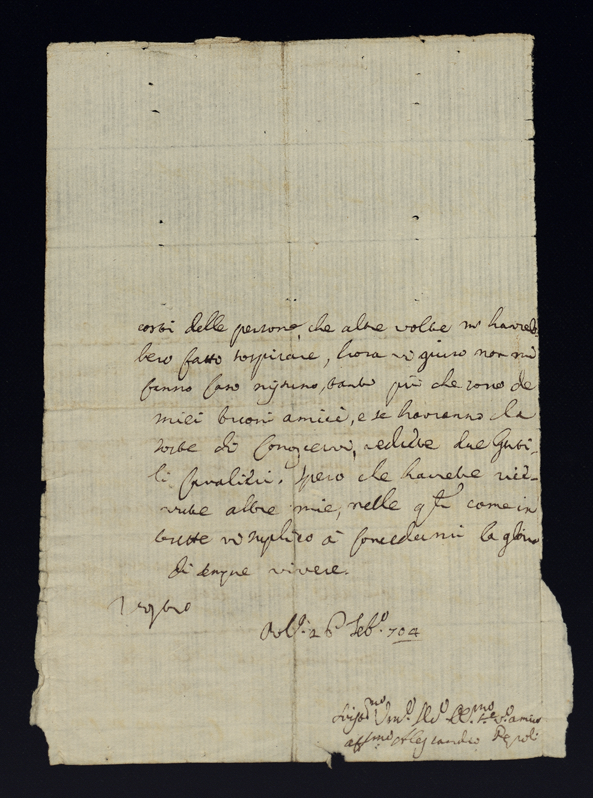 costi delle persone, che altre volte m'havreb
bero fatto sospirare, hora vi giuro non mi
fanno caso nissuno, tanto più che sono de
miei buoni amici, e se havranno la
sorte di conoscervi, vedrete due Genti-
li Cavalieri. Spero che havrete rice-
vute altre mie, nelle qli come in
queste vi suplico à concedermi la gloria
di sempre vivere.
Bol.a 26 Feb.o 704
Um.o amico
aff.mo Alessandro Pepoli